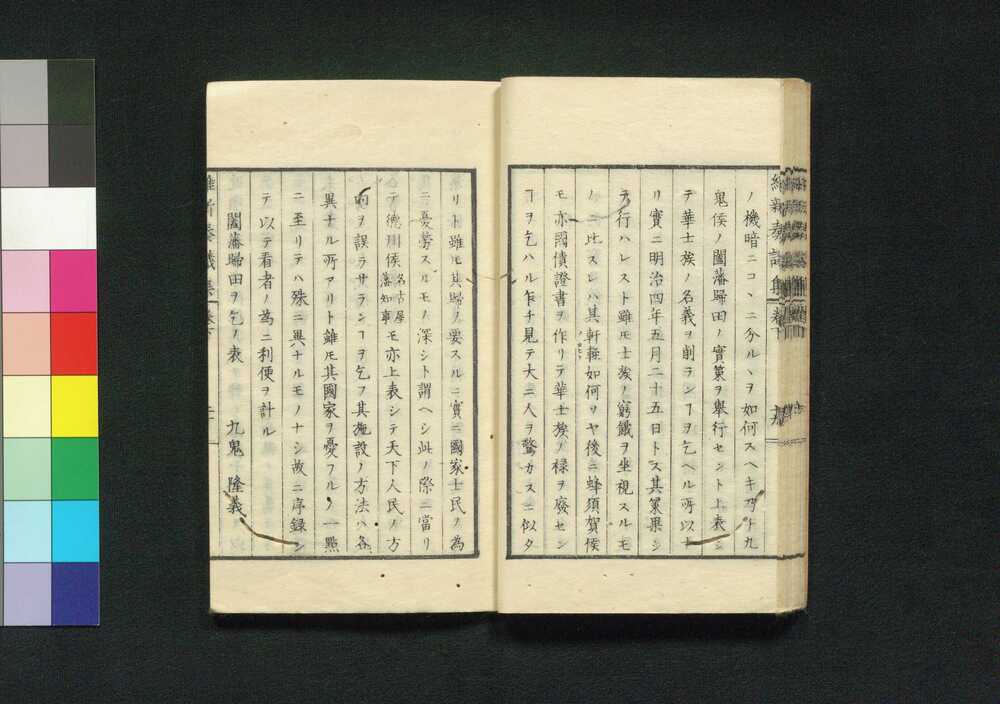 ノ機暗ニコヽニ分ルヽヲ如何スヘキ乃ト九
鬼侯ノ闔藩歸田ノ實策ヲ舉行セント上表シ
テ華士族ノ名義ヲ削ランヿヲ乞ヘル所以ナ
リ實ニ明治四年五月二十五日トス其策果シ
テ行ハレスト雖モ士族ノ窮餓ヲ坐視スルモ
ノニ比スレハ其軒輊如何ソヤ後ニ蜂須賀侯
モ亦國債證書ヲ作リテ華士族ノ祿ヲ廢セン
ヿヲ乞ハル乍チ見テ大ニ人ヲ驚カスニ似タ
リト雖モ其歸ノ要スルニ實ニ國家士民ノ為
ニ憂勞スルモノ深シト謂ヘシ此ノ際ニ當リ
テ德川侯名古屋藩知事モ亦上表シテ天下人民ノ方
向ヲ誤ラサランヿヲ乞フ其施設ノ方法ハ各
異ナル所アリト雖モ其國家ヲ憂フルノ一點
ニ至リテハ殊ニ異ナルモノナシ故ニ序錄シ
テ以テ看者ノ為ニ利便ヲ計ル
闔藩歸田ヲ乞ノ表 九鬼隆義
維新奏議集 卷下